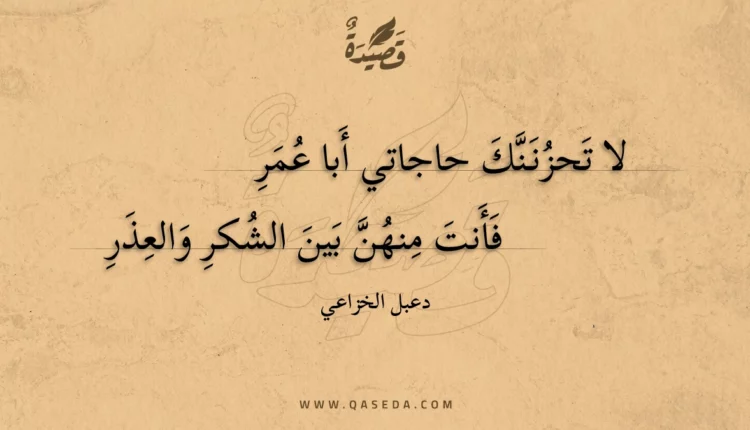 قَصِيْدَةٌ
لا تَحزُنَنَّكَ حاجاتي أَبا عُمَرِ
فَأَنتَ مِنهُنَّ بَينَ الشُكرِ وَالعِذَرِ
دعبل الخزاعي
WWW.QASEDA.COM